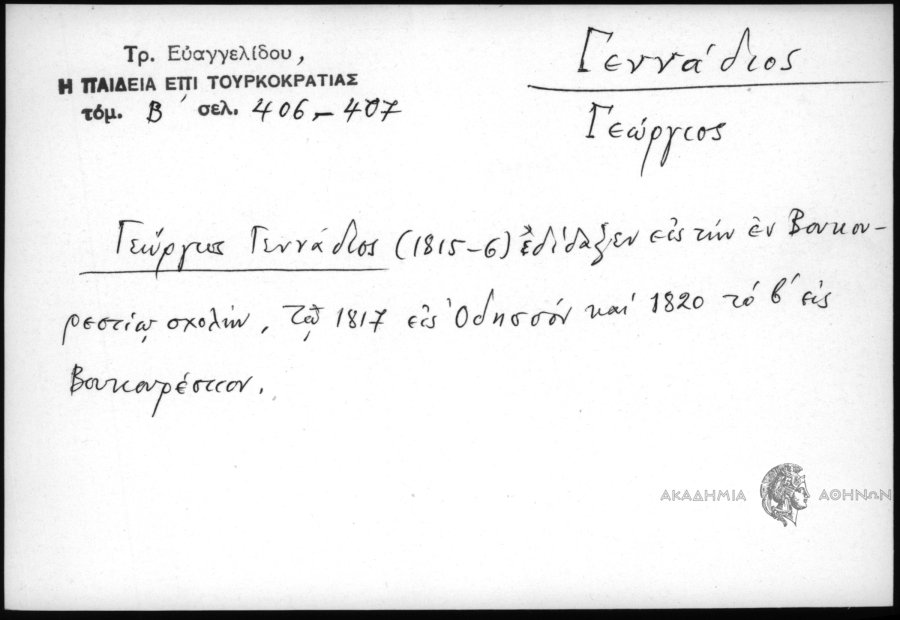 Τρ. Εὐαγγελίδου,
Η ΠΑΙΔΕΙΑ ΕΠΙ ΤΟΥΡΚΟΚΡΑΤΙΑΣ
τόμ. Β΄ σελ. 406,-407
Γεννάδιος
Γεώργιος
Γεώργιος Γεννάδιος (1815-6) ἐδίδαξεν εἰς τήν ἐν Βουκου-
ρεστίῳ σχολήν, τῷ 1817 εἰς Ὀδησσόν καί 1820 τό β΄ εἰς
Βουκουρέστιον.
ΑΚΑΔΗΜΙΑ ΑΘΗΝΩΝ